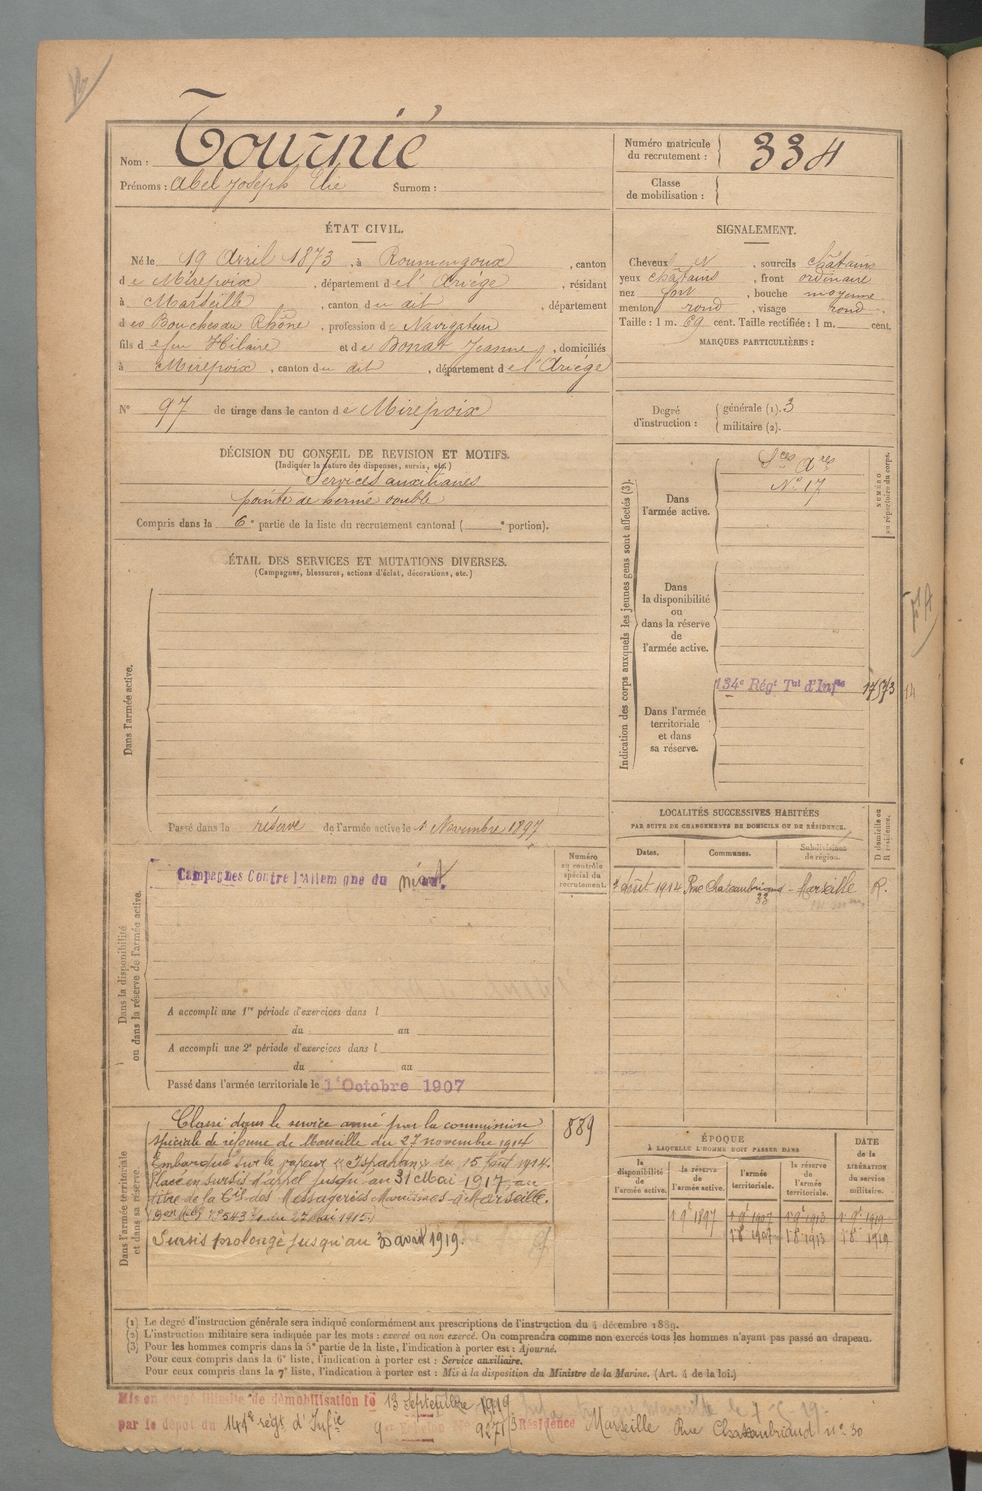 Nom : Tournié
Prénoms : Abel Joseph Elie Surnom :
Numéro matricule du recrutement : 334
Classe de mobilisation :
ÉTAT CIVIL.
Né le 19 Avril 1873, à Roumengoux, canton
de Mirepoix, département de l'Ariège, résidant
à Marseille, canton du dit, département
des Bouches du Rhône, profession de Navigateur
fils de feu Hilaire et de Bonat Jeanne, domiciliés
à Mirepoix, canton du dit, département de l'Ariège
N° 97 de tirage dans le canton de Mirepoix
SIGNALEMENT.
Cheveux N, sourcils châtains
yeux châtains, front ordinaire
nez fort, bouche moyenne
menton rond, visage rond.
Taille : 1 m. 69 cent. Taille rectifiée : 1 m. cent.
MARQUES PARTICULIÈRES :
Degré d'instruction : générale (1). 3
militaire (2).
DÉCISION DU CONSEIL DE REVISION ET MOTIFS.
(Indiquer la nature des dispenses, sursis, etc.)
Services auxiliaires
pointe de hernie double
Compris dans la 6e partie de la liste du recrutement cantonal ( e portion).
ÉTAIL DES SERVICES ET MUTATIONS DIVERSES.
(Campagnes, blessures, actions d'éclat, décorations, etc.)
Dans l'armée active.
Passé dans la réserve de l'armée active le 1 Novembre 1897
Indication des corps auxquels les jeunes gens sont affectés (3).
NUMÉRO au répertoire du corps.
Dans l'armée active.
Sces Ares
N° 17
Dans la disponibilité ou dans la réserve de l'armée active.
134e Régt Tal d'Infie
Dans l'armée territoriale et dans sa réserve.
LOCALITÉS SUCCESSIVES HABITÉES
PAR SUITE DE CHANGEMENTS DE DOMICILE OU DE RÉSIDENCE.
Dates. Communes. Subdivisions de région. D domicile ou R résidence.
août 1914 Rue Chateaubriand 33 - Marseille R.
Dans la disponibilité ou dans la réserve de l'armée active.
Numéro au contrôle spécial du recrutement.
Campagnes Contre l'Allemagne du néant.
A accompli une 1re période d'exercices dans l
du au
A accompli une 2e période d'exercices dans l
du au
Passé dans l'armée territoriale le 1 Octobre 1907
Dans l'armée territoriale et dans sa réserve.
889
Classé dans le service armé par la commission
spéciale de réforme de Marseille du 27 novembre 1914
Embarqué sur le vapeur "Ispahan" le 15 août 1914.
Placé en sursis d'appel jusqu'au 31 Mai 1917, au
titre de la Cie des Messageries Maritimes à Marseille.
Sursis prolongé jusqu'au 30 avril 1919.
ÉPOQUE
À LAQUELLE L'HOMME DOIT PASSER DANS
la disponibilité de l'armée active. la réserve de l'armée active. l'armée territoriale. la réserve de l'armée territoriale.
DATE de la LIBÉRATION DU SERVICE militaire.
1 9e 1897 1 9e 1907 1 9e 1913 1 9e 1919
1 8e 1907 1 8e 1913 1 8e 1919
(1) Le degré d'instruction générale sera indiqué conformément aux prescriptions de l'instruction du 4 décembre 1889.
(2) L'instruction militaire sera indiquée par les mots : exercé ou non exercé. On comprendra comme non exercés tous les hommes n'ayant pas passé au drapeau.
(3) Pour les hommes compris dans la 5e partie de la liste, l'indication à porter est : Ajourné.
Pour ceux compris dans la 6e liste, l'indication à porter est : Service auxiliaire.
Pour ceux compris dans la 7e liste, l'indication à porter est : Mis à la disposition du Ministre de la Marine. (Art. 4 de la loi.)
Mis en congé illimité de démobilisation le 13 septembre 1919
par le dépôt du 141e régt d'Infie Résidence Marseille Rue Chateaubriand n° 30